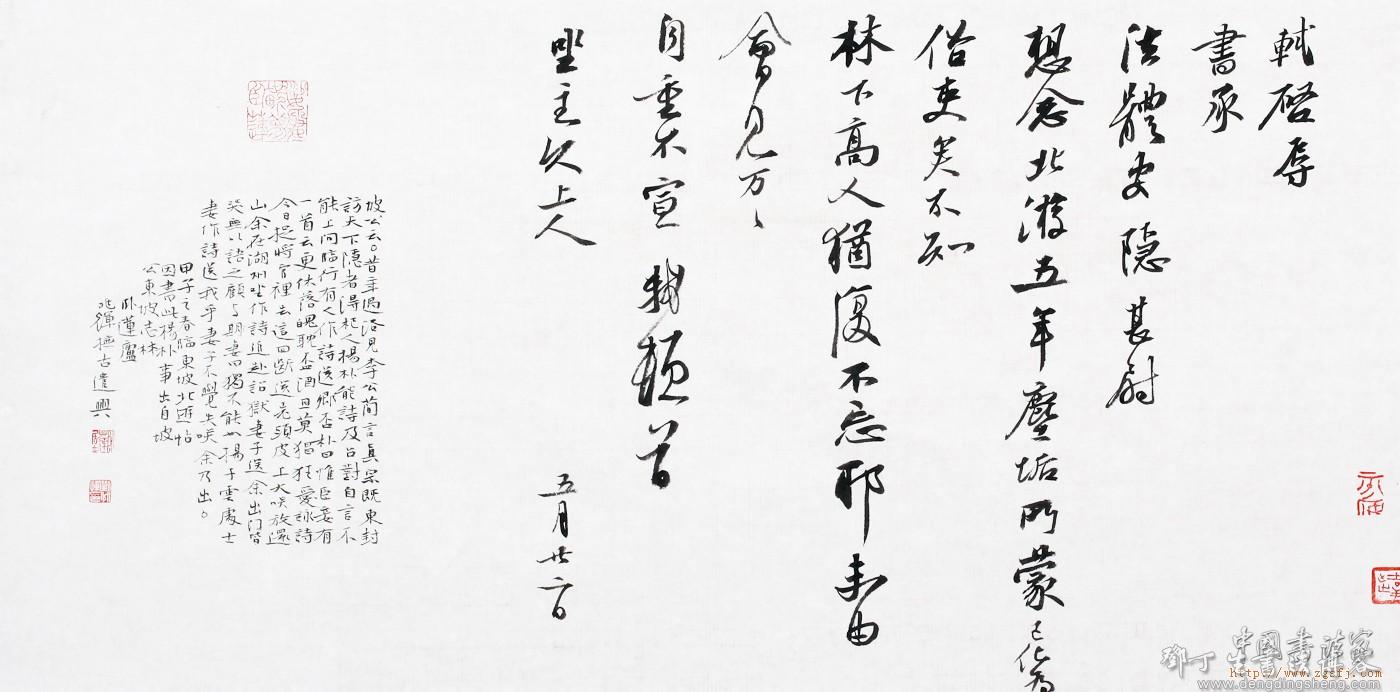 軾啓辱
書承
法體安隱甚尉
想念北游五年塵垢所蒙已化爲
俗吏矣不知
林下高人猶復不忘耶未由
會見万〻
自重不宣 軾頓首
坐主久上人
五月廿二日
坡公云昔年過洛見李公蕳言真宗既東封
訪天下隱者得杞人楊朴能詩及召對自言不
能上问臨行有人作詩送卿否朴曰惟臣妾有
一首云更休落魄耽盃酒且莫猖狂愛詠詩
今日捉將官裡去這回斷送老頭皮上大咲放還
山余在湖州坐作詩追赴詔獄妻子送余出門皆
哭無以語之顧与期妻曰獨不能如楊子雲處士
妻作詩送我乎妻子不覺失咲余乃出。
甲子之春臨東坡北游帖
因書此楊朴事出自坡
公東坡志林
卧蓮廬
兆輝撫古遣興
中國書法博客
鄧丁生書法博客
http://www.zgsfj.com
www.dengdingsheng.com